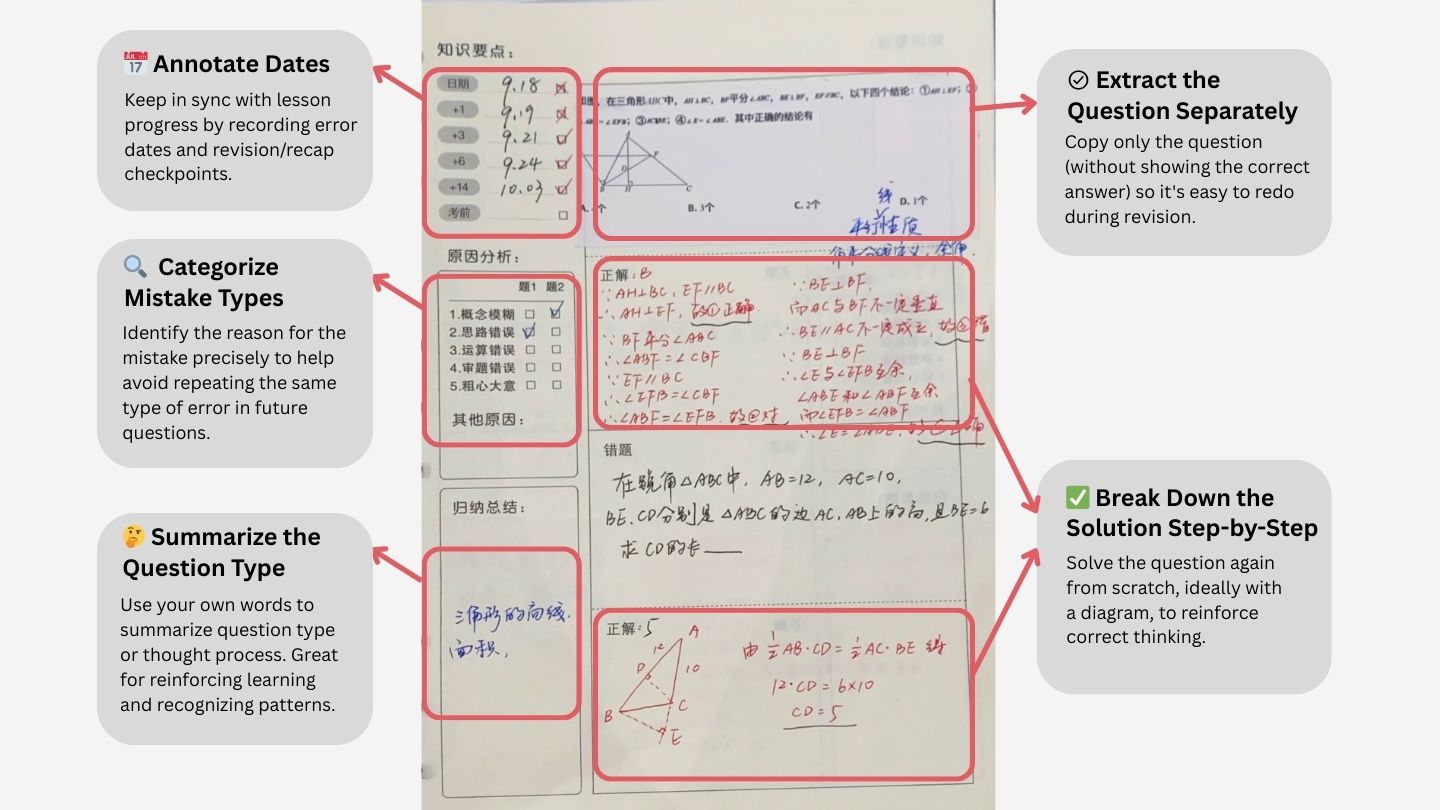 Annotate Dates
Keep in sync with lesson
progress by recording error
dates and revision/recap
checkpoints.
Categorize
Mistake Types
Identify the reason for the
mistake precisely to help
avoid repeating the same
type of error in future
questions.
Summarize the
Question Type
Use your own words to
summarize question type
or thought process. Great
for reinforcing learning
and recognizing patterns.
知识要点:
日期 9.18
+1 9.19
+3 9.21
+6 9.24
+14 10.03
考前
原因分析:
题1 题2
1.概念模糊
2.思路错误
3.运算错误
4.审题错误
5.粗心大意
其他原因:
归纳总结:
三角形的高线.
面积,
如图, 在三角形ABC中, AH⊥BC, BF平分∠ABC, BE⊥BF, EF∥BC, 以下四个结论: ①AH⊥EF; ②
∠ABF=∠EFB; ③AC∥BE; ④∠E=∠ABE. 其中正确的结论有
B. 3个 C. 2个 D. 1个
线
平行性质
正解: B
∵AH⊥BC, EF∥BC
∴AH⊥EF, 故①正确
∵BF平分∠ABC
∴∠ABF=∠CBF
∵EF∥BC
∴∠EFB=∠CBF
∴∠ABF=∠EFB. 故②对
∵BE⊥BF,
而AC与BF不一定垂直
∴BE∥AC不一定成立, 故③错
∵BE⊥BF
∴∠E与∠EFB互余,
∠ABE和∠ABF互余
而∠EFB=∠ABF
∴∠E=∠ABE,
错题
在锐角△ABC中, AB=12, AC=10,
BE、CD分别是△ABC的边AC, AB上的高, 且BE=6
求CD的长
正解: 5
A
12
D
10
B
C
E
由 1/2 AB·CD = 1/2 AC·BE 得
12·CD=6×10
CD=5
Extract the
Question Separately
Copy only the question
(without showing the correct
answer) so it's easy to redo
during revision.
Break Down the
Solution Step-by-Step
Solve the question again
from scratch, ideally with
a diagram, to reinforce
correct thinking.